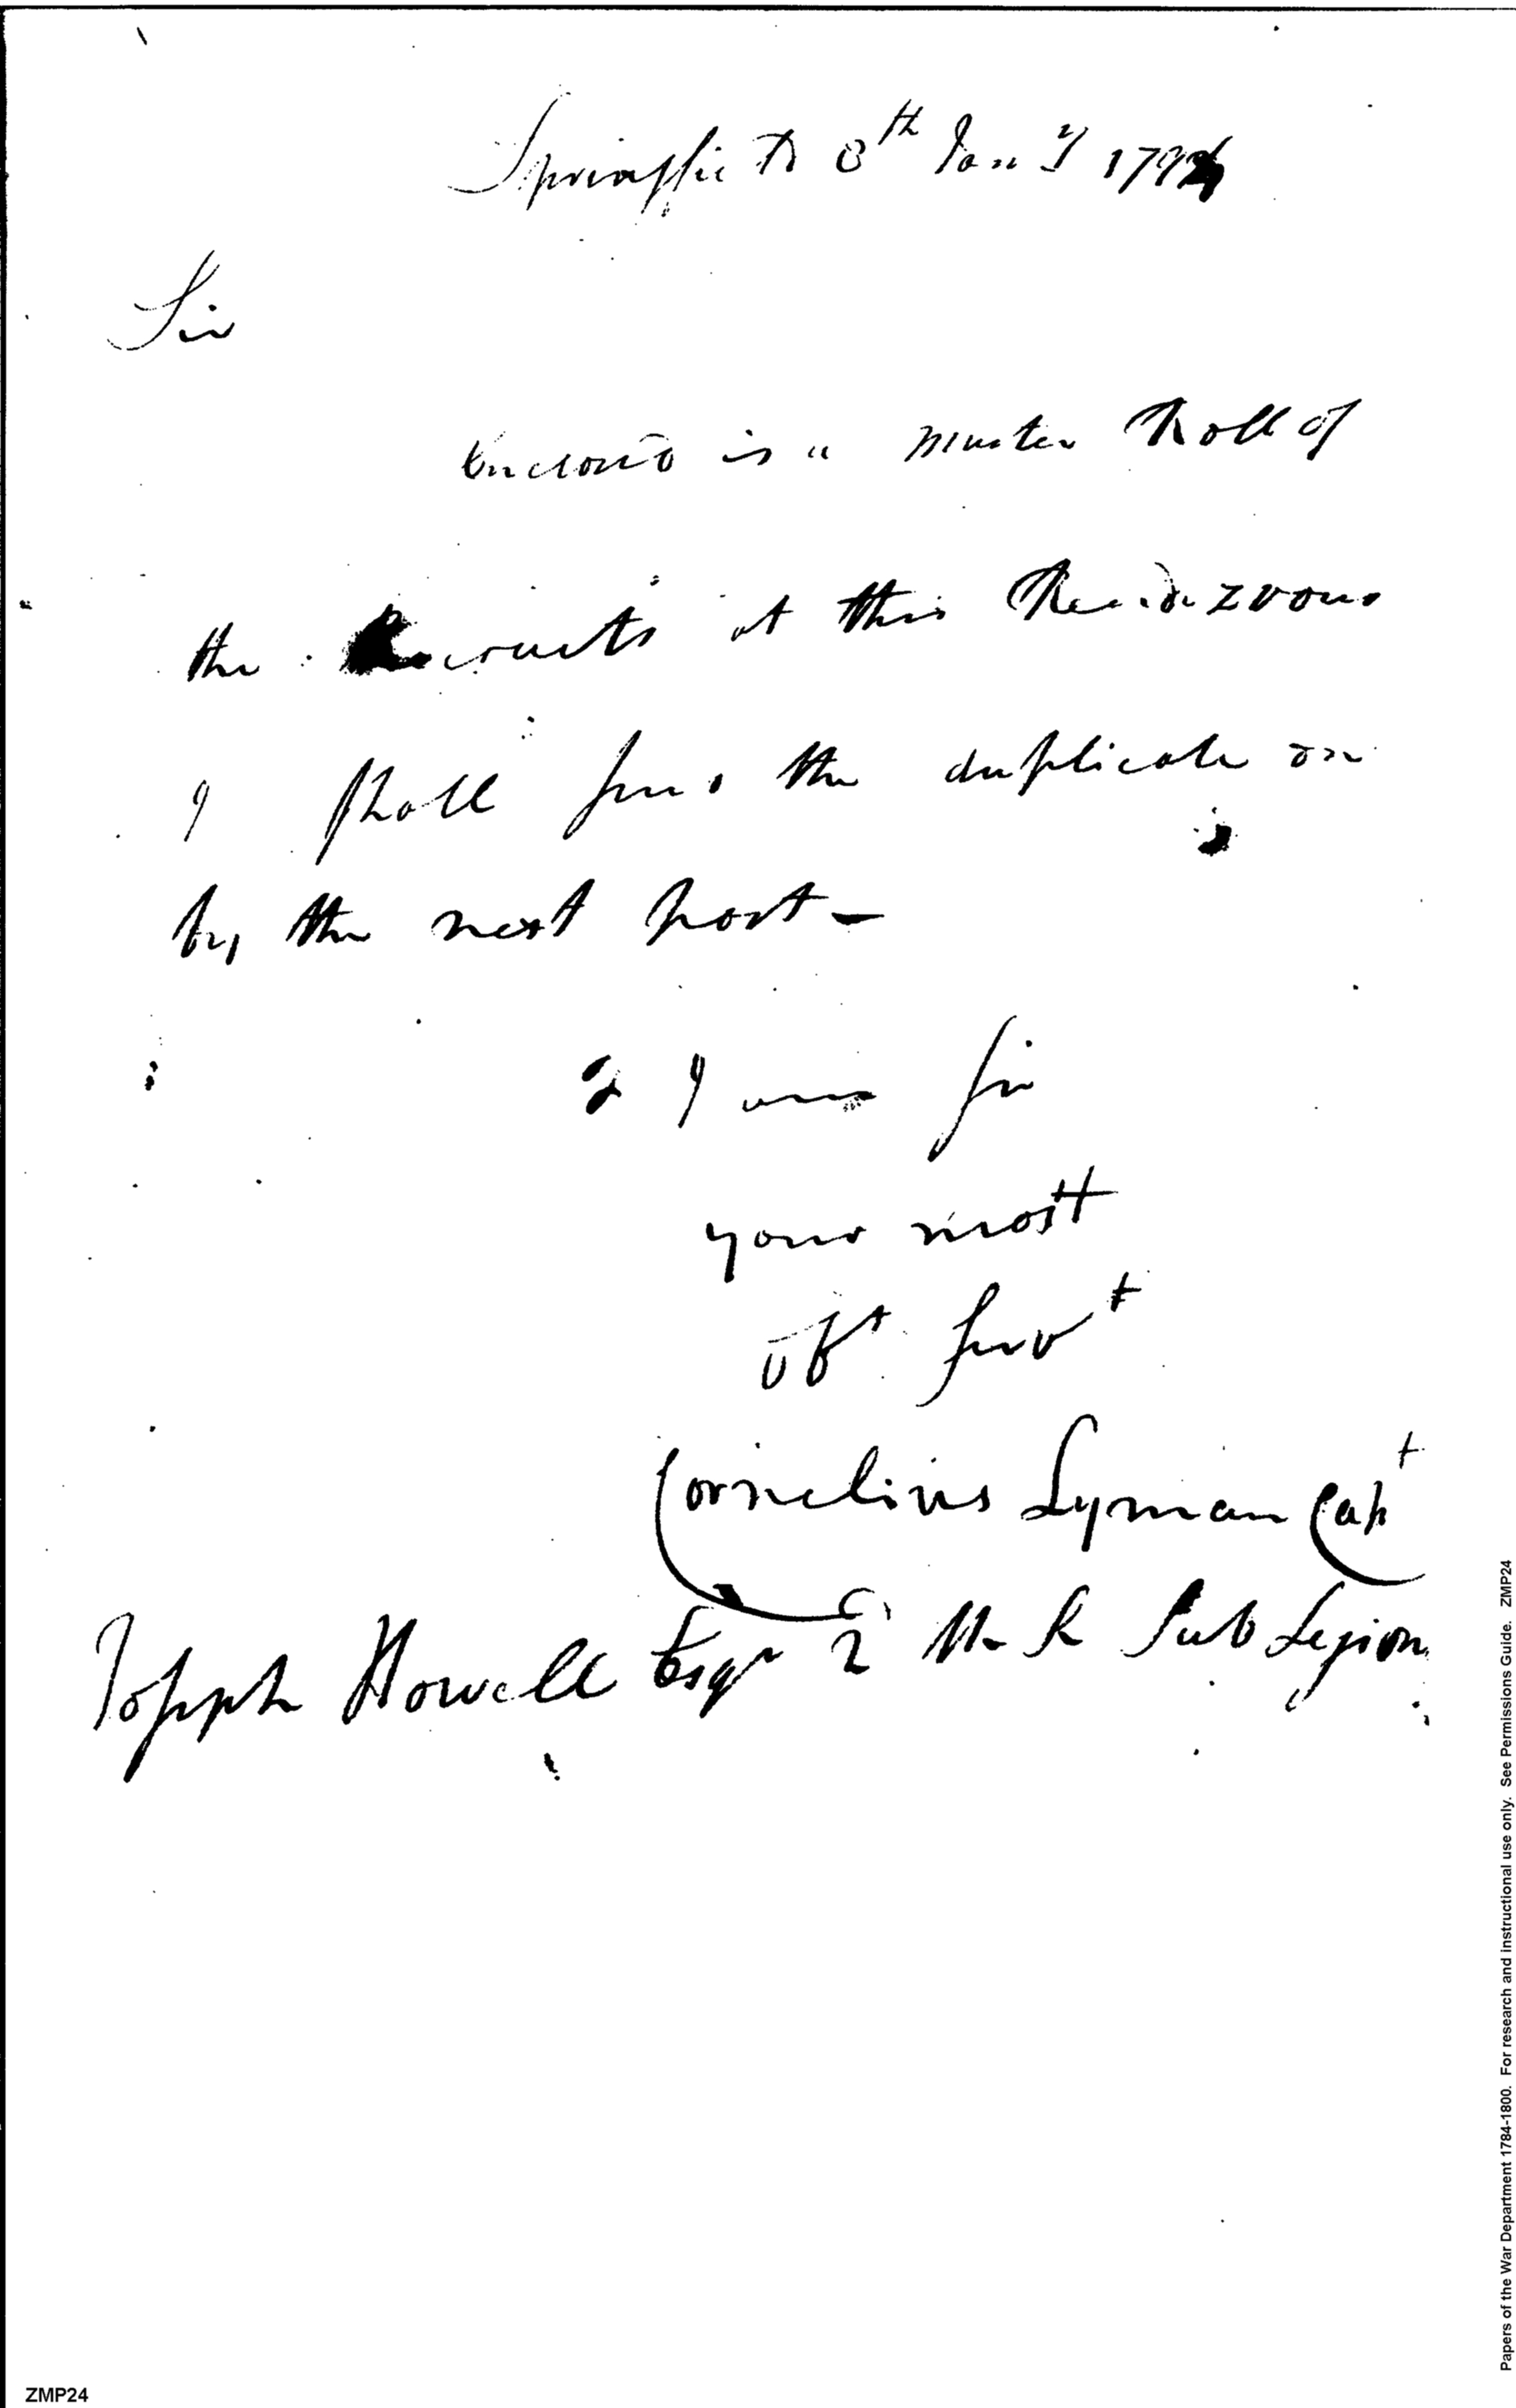 Springfield 8th Jany 179
Sir
Enclosed is a Muster Roll of
the Recruits at this Rendezvous
I shall send the duplicate on
by the next post —
I am Sir
your most
obt Servt
Cornelius Lyman Capt
Joseph Howell Esqr 2d Sub Legion
Papers of the War Department 1784-1800. For research and instructional use only. See Permissions Guide. ZMP24
ZMP24